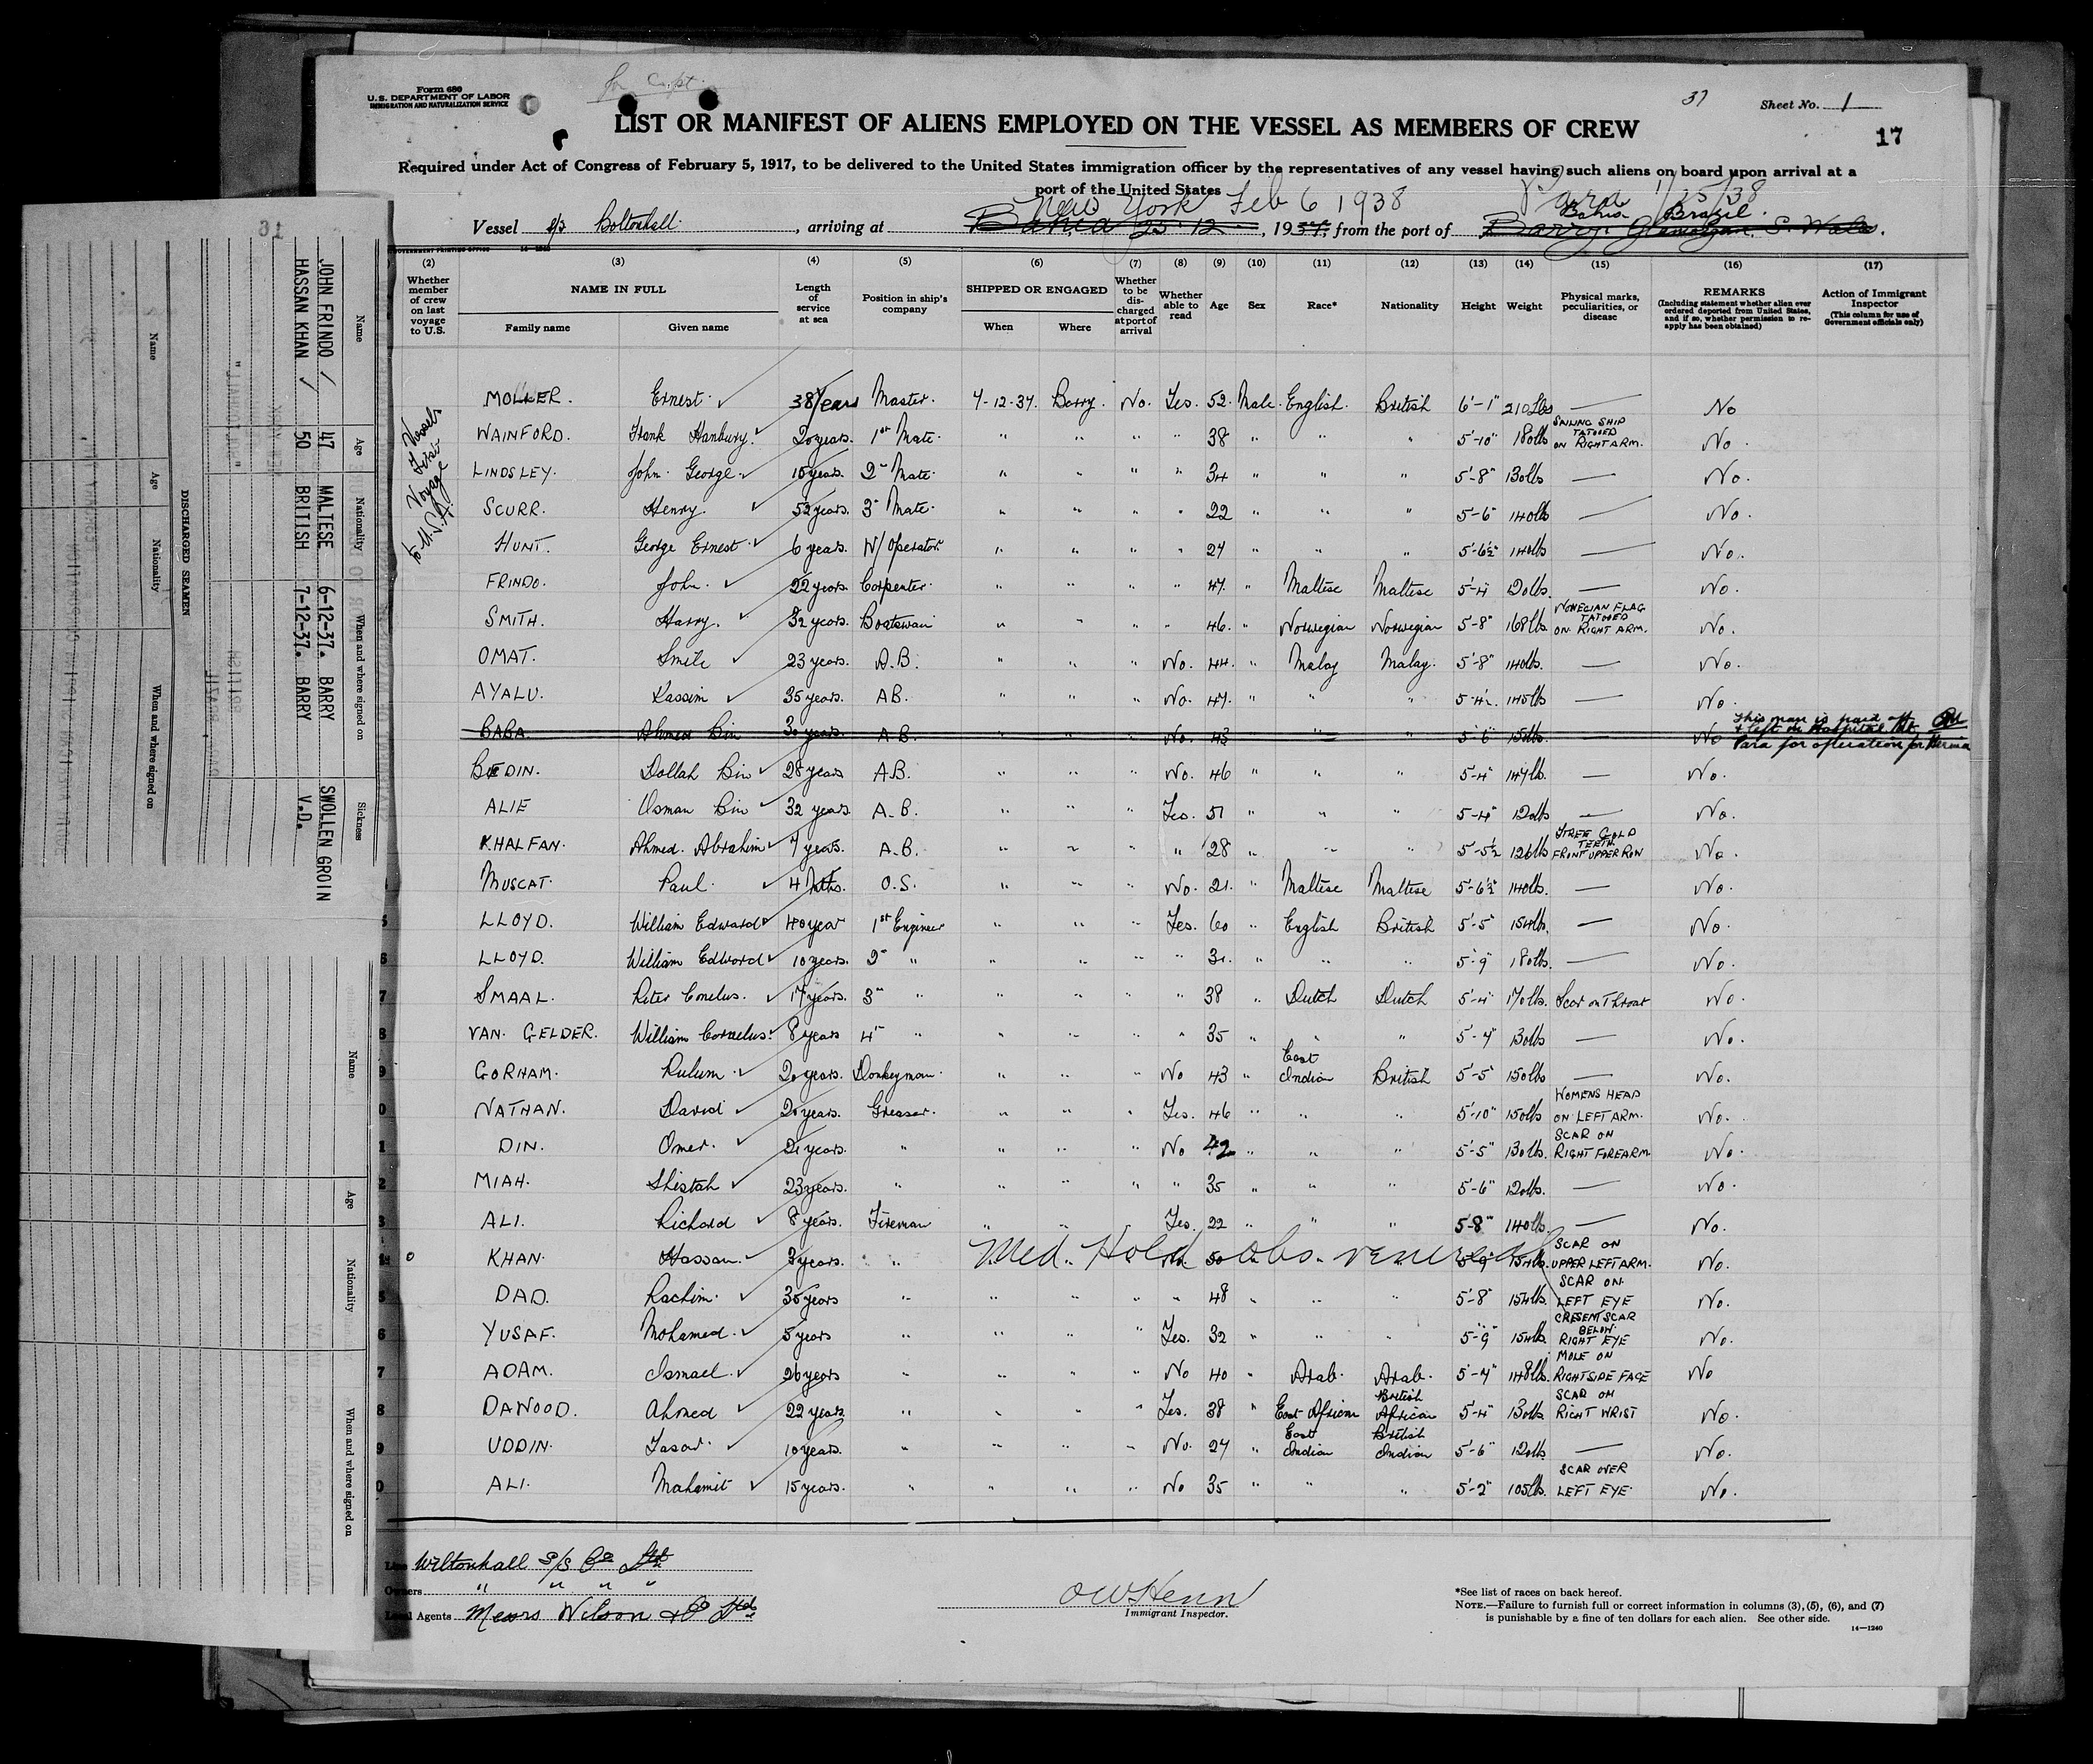 Form 680
U.S. DEPARTMENT OF LABOR
IMMIGRATION AND NATURALIZATION SERVICE
37
Sheet No. 1
17
LIST OR MANIFEST OF ALIENS EMPLOYED ON THE VESSEL AS MEMBERS OF CREW
Required under Act of Congress of February 5, 1917, to be delivered to the United States immigration officer by the representatives of any vessel having such aliens on board upon arrival at a
port of the United States
New York Feb 6 1938 Para 1/25/38
Bahia Brazil.
Vessel s/s Boltonhall. , arriving at Bahia 23.12. , 1937, from the port of Barry. Glamorgan. S. Wales.
(2) (3) (4) (5) (6) (7) (8) (9) (10) (11) (12) (13) (14) (15) (16) (17)
Whether member of crew on last voyage to U.S.
NAME IN FULL
Family name Given name
Length of service at sea
Position in ship's company
SHIPPED OR ENGAGED
When Where
Whether to be discharged at port of arrival
Whether able to read
Age Sex Race* Nationality Height Weight
Physical marks, peculiarities, or disease
REMARKS
(Including statement whether alien ever ordered deported from United States, and if so, whether permission to reapply has been obtained)
Action of Immigrant Inspector
(This column for use of Government officials only)
Vessels First Voyage to U.S.A.
MOLLER. Ernest. 38 Years Master. 7-12-37. Barry. No. Yes. 52. Male. English. British 6'-1" 210 lbs — No
WAINFORD. Frank Hanbury. 20 years. 1st Mate. " " " " 38 " " " 5'-10" 180 lbs SAILING SHIP TATOOED ON RIGHT ARM. No.
LINDSLEY. John George. 15 years. 2" Mate. " " " " 34 " " " 5'-8" 130 lbs — No.
SCURR. Henry. 5½ years. 3" Mate. " " " " 22 " " " 5'-6" 140 lbs — No.
HUNT. George Ernest. 6 years. W/Operator. " " " " 24 " " " 5'-6½" 140 lbs — No.
FRINDO. John. 22 years. Carpenter. " " " " 47. " Maltese Maltese 5'-4" 120 lbs. — No.
SMITH. Harry. 32 years. Boatswain " " " " 46. " Norwegian Norwegian 5'-8" 168 lbs. NOWEGIAN FLAG TATOOED ON RIGHT ARM. No.
OMAT. Smile 23 years. A.B. " " " No. 44. " Malay Malay. 5'-8" 140 lbs. — No.
AYALU. Kassim 35 years. AB. " " " No. 47. " " " 5-4½. 145 lbs — No.
BABA. Ahmed Bin 30 years. A.B. " " " No. 43 " " " 5'-6" 150 lbs. — No This man is paid off & left in Hospital at Para for operation for Hernia
BEDIN. Dollah Bin 28 years A.B. " " " No. 46 " " " 5-4" 147 lb. — No.
ALIE Osman Bin 32 years A.B. " " " Yes. 51 " " " 5-4" 120 lbs — No.
KHALFAN. Ahmed. Abrahim 7 years. A.B. " " " " 28 " " " 5-5½ 126 lbs THREE GOLD TEETH FRONT UPPER ROW No.
MUSCAT. Paul. 4 Mths. O.S. " " " No. 21. " Maltese Maltese 5'-6½" 140 lbs. — No.
LLOYD. William Edward 40 year 1st Engineer " " " Yes. 60 " English British 5'-5" 154 lbs. — No.
LLOYD. William Edward 10 years. 2" " " " " " 31. " " " 5'-9" 180 lbs. — No.
SMAAL. Peter Conelus. 17 years. 3" " " " " " 38 " Dutch Dutch 5'-4" 170 lbs. Scar on Throat No.
VAN. GELDER. William Cornelus. 8 years 4" " " " " " 35 " " " 5'-4" 130 lbs — No.
GORHAM. Rulum. 20 years. Donkeyman. " " " No 43 " East Indian British 5'-5" 150 lbs — No.
NATHAN. David 20 years. Greaser. " " " Yes. 46 " " " 5'-10" 150 lbs WOMENS HEAD ON LEFT ARM. No.
DIN. Omer. 21 years. " " " " No 42 " " " 5'-5" 130 lbs. SCAR ON RIGHT FOREARM No.
MIAH. Shistah 23 years. " " " " " 35 " " " 5'-6" 120 lbs. — No.
ALI. Richard 8 years. Fireman " " " Yes. 22 " " " 5-8" 140 lbs. — No.
KHAN. Hassan. 3 years. " Med. Hold obs. venereal No. 50 5-9" 154 lb. SCAR ON UPPER LEFT ARM. No.
DAD. Rachim. 35 years " " " " " 48 " " " 5'-8" 154 lb. SCAR ON LEFT EYE No.
YUSAF. Mohamed. 5 years " " " " Yes. 32 " " " 5-9" 154 lb. CRESENT SCAR BELOW RIGHT EYE No.
ADAM. Ismael. 26 years " " " " No 40 " Arab. Arab. 5'-4" 148 lb. MOLE ON RIGHT SIDE FACE No
DAWOOD. Ahmed 22 years " " " " Yes. 38 " East African British African 5'-4" 130 lb. SCAR ON RIGHT WRIST No.
UDDIN. Tasar. 10 years. " " " " No. 27 " East Indian British Indian 5'-6" 120 lb. — No.
ALI. Mahamit 15 years. " " " " No 35 " " " 5'-2" 105 lb. SCAR OVER LEFT EYE. No.
Line Wiltonhall S/S Co Ltd
Owners " " " "
Local Agents Messrs Wilson & Co Ltd
OWHenn
Immigrant Inspector.
*See list of races on back hereof.
NOTE.—Failure to furnish full or correct information in columns (3), (5), (6), and (7) is punishable by a fine of ten dollars for each alien. See other side.
14—1240
Name Age Nationality When and where signed on Sickness
JOHN FRINDO 47 MALTESE 6-12-37. BARRY SWOLLEN GROIN
HASSAN KHAN 50 BRITISH 7-12-37. BARRY V.D.
DISCHARGED SEAMEN
Name Age Nationality When and where signed on
Name Age Nationality When and where signed on